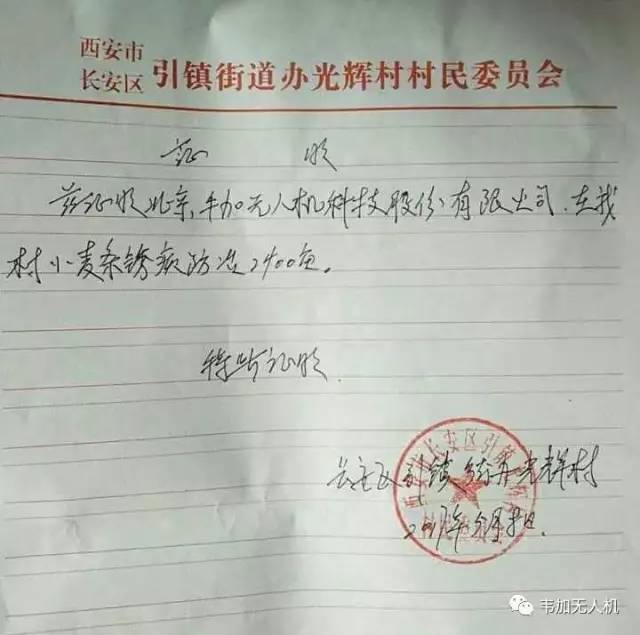 西安市
长安区 引镇街道办光辉村村民委员会
证 明
兹证明北京韦加无人机科技股份有限公司，在我
村小麦条锈病防治2400亩。
特此证明
长安区引镇街办光辉村
韦加无人机